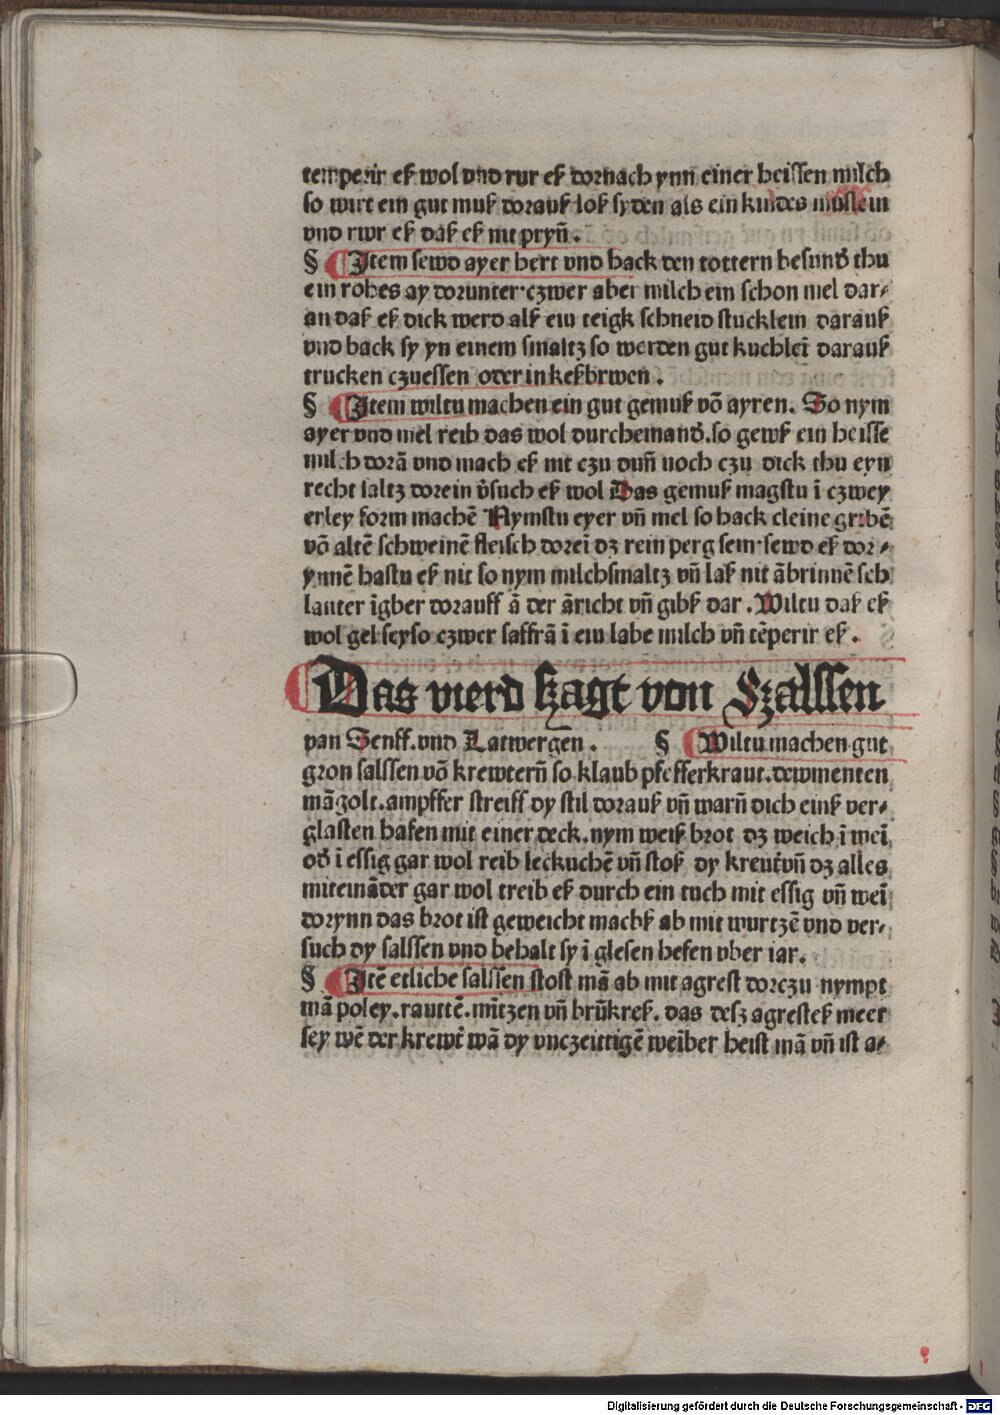 temperir eß wol vnd rur eß dornach ynn einer heissen milch
so wirt ein gut muß dorauß loß syden als ein kindes müsslein
vnd rwr eß daß eß nit pryñ.
§ Item sewd ayer hert vnd hack den tottern besunđ thu
ein rohes ay dorunter·czwer aber milch ein schon mel dar⸗
an daß eß dick werd alß ein teigk schneid stucklein darauß
vnd back sy yn einem smaltz so werden gut kuchleī darauß
trucken czuessen oder in keßbrwen.
§ Item wiltu machen ein gut gemuß vō ayren. So nym
ayer vnd mel reib das wol durcheinanđ.so gewß ein heisse
milch dorā vnd mach eß nit czu duñ noch czu dick thu eyn
recht saltz dorein v̄such eß wol Das gemuß magstu ī czwey
erley form machē Nymstu eyer vñ mel so hack cleine gribē
vō altē schweinē fleisch doreī dz rein perg sein·sewd eß dor⸗
ynnē hastu eß nit so nym milchsmaltz vñ laß nit ābrinnē seh
lauter īgber dorauff ā der āricht vñ gibß dar. Wiltu daß eß
wol gel sey so czwer saffrā ī ein labe milch vñ tēperir eß.
Das vierd sagt von Szalssen
van Senff.vnd Latwergen. § Wiltu machen gut
gron salssen vō krewterñ so klaub pfefferkraut.dewmenten
māgolt.ampffer streiff dy stil dorauß vñ warñ dich einß ver⸗
glasten hafen mit einer deck.nym weiß brot dz weich ī weī
ođ ī essig gar wol reib leckuchē vñ stoß dy kreut̄ vñ dz alles
miteināder gar wol treib eß durch ein tuch mit essig vñ weī
dorynn das brot ist geweicht machß ab mit wurtzē vnd ver⸗
such dy salssen vnd behalt sy ī glesen hefen vber iar.
§ Itē etliche salssen stost mā ab mit agrest dorczu nympt
mā poley.rauttē.mītzen vñ brūkreß. das desz agresteß meer
sey wē der krewt̄ wā dy vnczeittigē weiber heist mā vñ ist a⸗
Digitalisierung gefördert durch die Deutsche Forschungsgemeinschaft - DFG